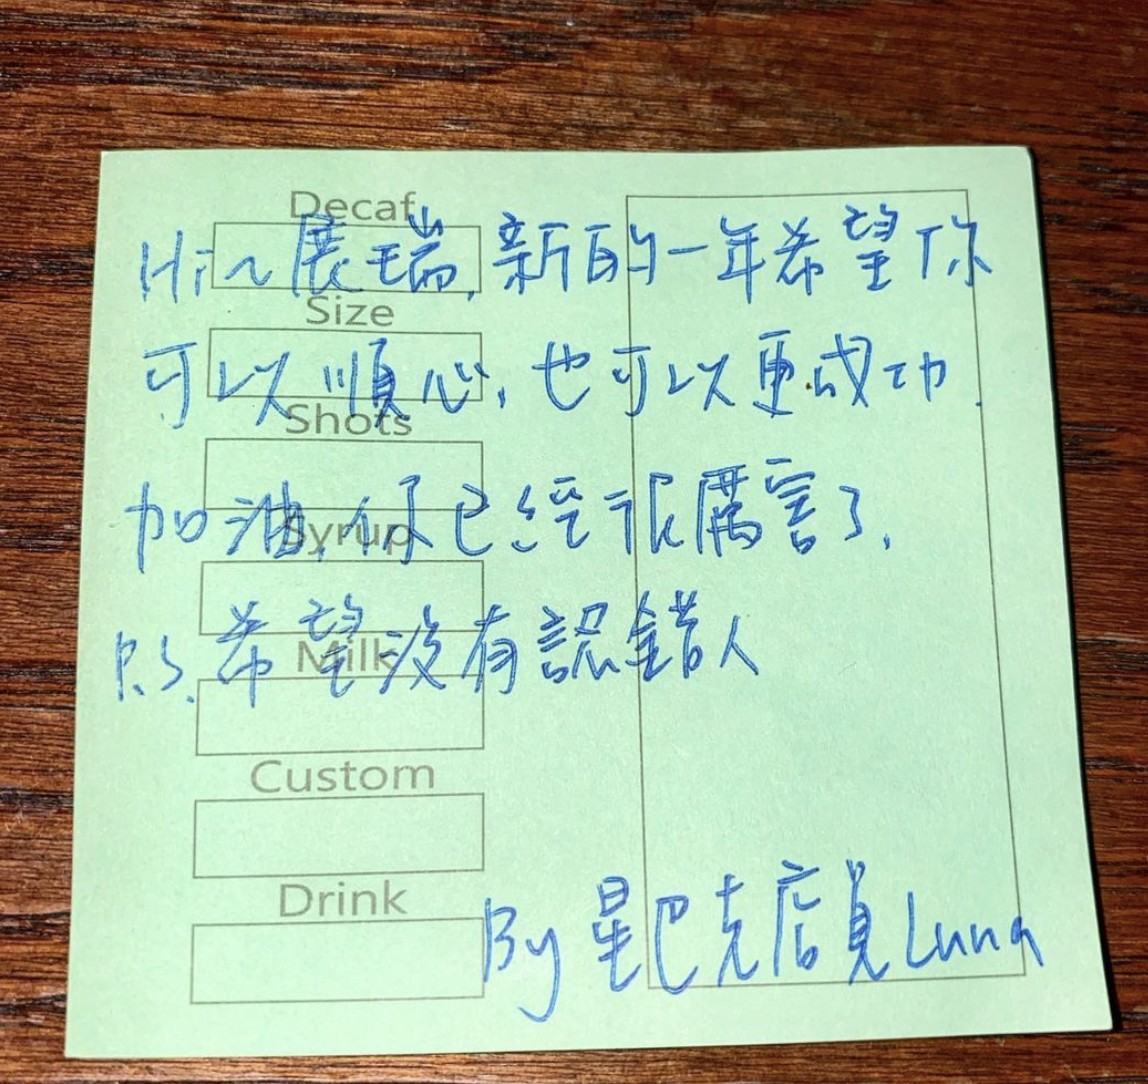 Decaf
Hi~展瑞,新的一年希望你
Size
可以順心,也可以更成功.
Shots
加油,你已經很厲害了.
Syrup
P.S.希望沒有認錯人
Milk
Custom
Drink
By 星巴克店員Luna